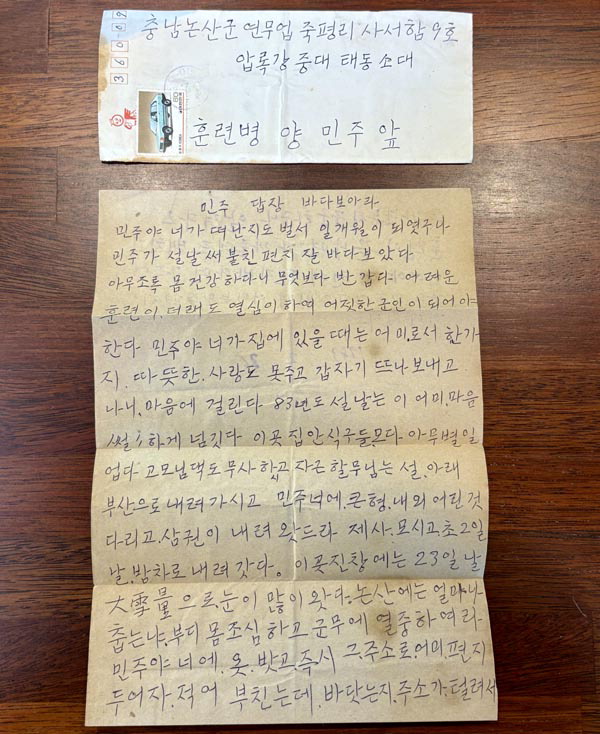 360-02
충남논산군 연무읍 죽평리 사서함 9호
압록강 중대 태동소대
훈련병 양 민주 앞
민주 답장 바다보아라
민주야 너가 떠난지도 벌서 일개월이 되였구나
민주가 설날 써 붙친 편지 잘 바다보았다
아무조록 몸 건강 하다니 무엇보다 반갑다 어려운
훈련이, 더래도 열심이 하여 어짓한 군인이 되어야
한다 민주야 너가 집에 있을 때는 어미로서 한가
지, 따뜻한, 사랑도 못주고 갑자기 뜨나 보내고
나니, 마음에 걸린다 83년도 설날는 이 어미, 마음
쓸쓸하게 넘깃다 이곳 집안식구들, 모다 아무별일
업다 고모님댁도 무사하고 자근 할무님는 설, 아래
부산으로 내려 가시고 민주너에, 큰형, 내외 어린것
다리고, 삼권이 내려 왓드라 제사, 모시고, 초2일
날, 밤차로 내려 갓다. 이곳진창에는 23일 날
大雪量으로, 눈이 많이 왓다, 논산에는 얼마나
춥는냐, 부디 몸조심 하고 군무에 열중하여라
민주야 너에, 옷, 밧고, 즉시 그, 주소로, 어미 편지
두어자, 적어 부친는데, 바닷는지, 주소가, 털려서